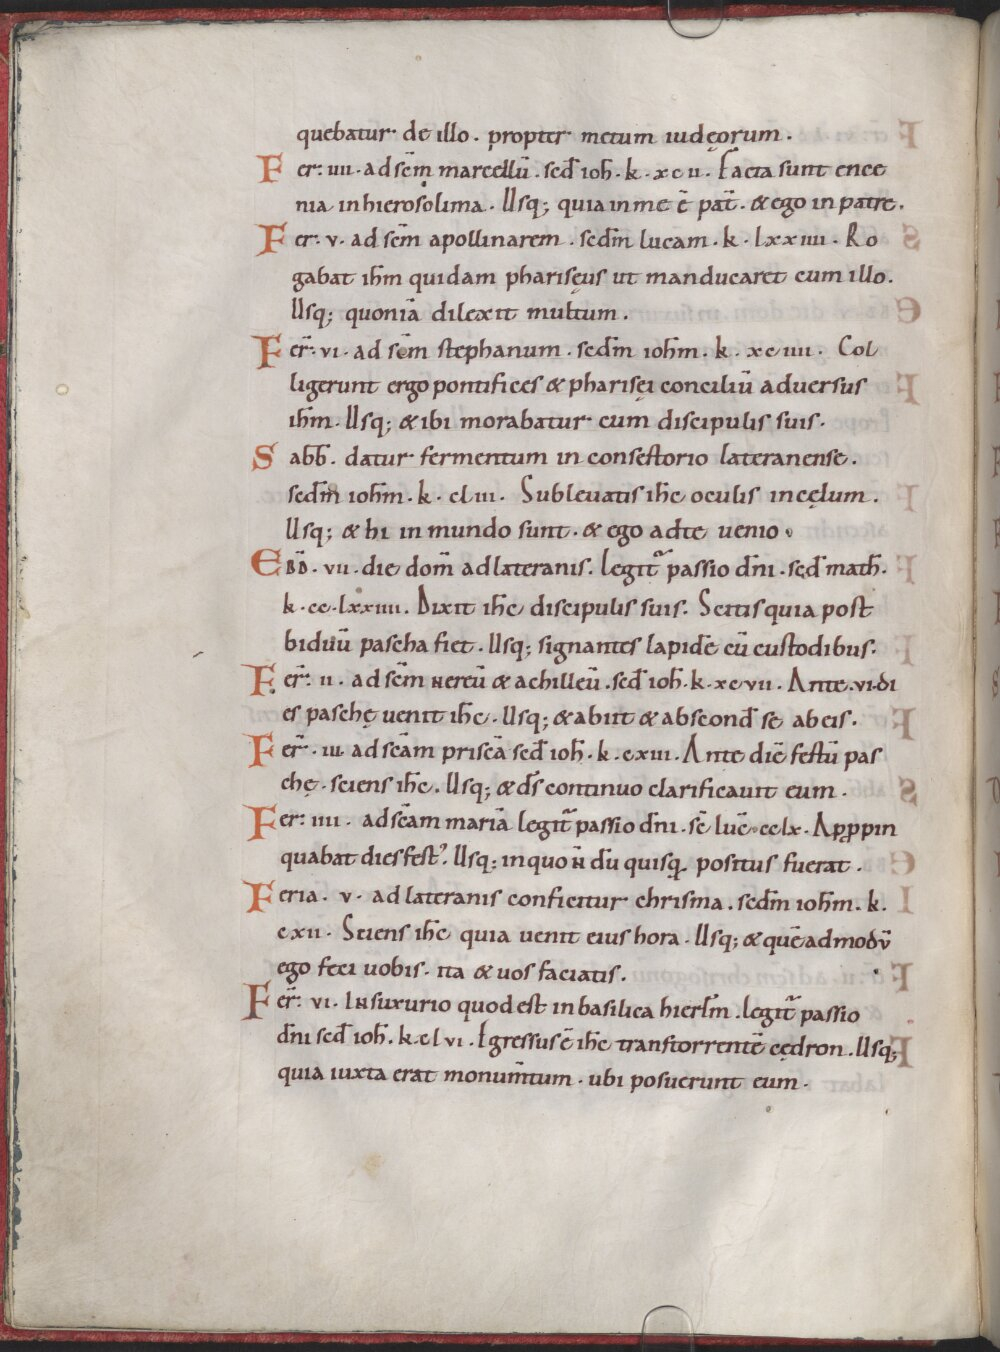 quebatur de illo. propter metum iudęorum.
Fer̄. iiii. ad sēm marcellū. sed̄ ioh̄. k. xc v. Facta sunt ence
nia in hierosolima. Usq; quia in me ē pat̄. & ego in patre.
Fer̄. v. ad sēm apollinarem. sedm̄ lucam. k. lxxiiii. Ro
gabat ih̄m quidam pharisęus ut manducaret cum illo.
Usq; quoniā dilexit multum.
Fer̄. vi. ad sēm stephanum. sedm̄ ioh̄m. k. xc iiii. Col
ligerunt ergo pontifices & pharisęi conciliū adversus
ih̄m. Usq; & ibi morabatur cum discipulis suis.
Sabb̄. datur fermentum in consistorio lateranense.
sedm̄ ioh̄m. k. cliii. Sublevatis ih̄c oculis in cęlum.
Usq; & hi in mundo sunt. & ego ad te uenio.
Ebd̄. vii. die dom̄ ad lateranis. legit̄ passio dn̄i. sed̄ math̄.
k. cc. lxxiiii. Dixit ih̄c discipulis suis. Scitis quia post
biduū pascha fiet. Usq; signantes lapidē cū custodibus.
Fer̄. ii. ad sēm nereū & achilleū. sed̄ ioh̄. k. xc vii. Ante. vi. di
es paschę uenit ih̄c. Usq; & abiit & abscond̄ se ab eis.
Fer̄. iii. ad sēam priscā sed̄ ioh̄. k. cxiii. Ante diē festū pas
chę. sciens ih̄c. Usq; & ds̄ continuo clarificauit eum.
Fer̄. iiii. ad sēam mariā legit̄ passio dn̄i. sē lucē. cclx. Approppin
quabat dies fest'. Usq; in quo n̄ dū quisq. positus fuerat.
Feria. v. ad lateranis conficitur chrisma. sedm̄ ioh̄m. k.
cxii. Sciens ih̄c quia uenit eius hora. Usq; & quē ad modv̄
ego feci uobis. ita & uos faciatis.
Fer̄. vi. In suxurio quod est in basilica hierl̄m. legit̄ passio
dn̄i sed̄ ioh̄. k. clvi. Egressus ē ih̄c trans torrentē cędron. Usq;
quia iuxta erat monum̄tum. ubi posuerunt eum.